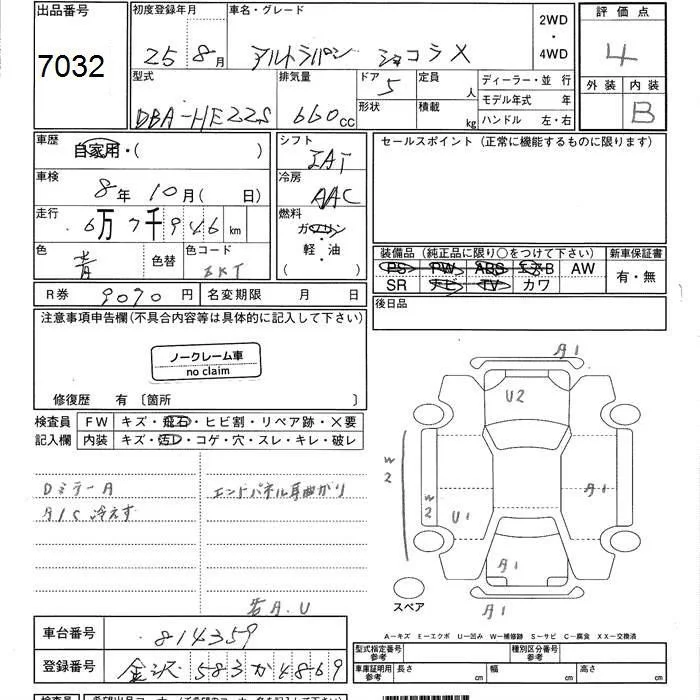 出品番号
7032
初度登録年月
25 8月
車名・グレード
アルトラパン ショコラX
2WD
・
4WD
評価点
4
外装 内装
B
型式
DBA-HE22S
排気量
660cc
ドア
5
形状
定員
人
積載
kg
ディーラー・並行
モデル年式 年
ハンドル 左・右
車歴
自家用・( )
シフト
IAT
セールスポイント(正常に機能するものに限ります)
車検
8年10月( 日)
冷房
AAC
走行
6万7千946km
燃料
ガソリン
・
軽・油
( )
色
青
色替
色コード
ZKT
装備品(純正品に限り○をつけて下さい)
新車保証書
PS PW ABS エアB AW
SR ナビ TV カワ
有・無
R券 9070円
名変期限 月 日
後日品
注意事項申告欄(不具合内容等は具体的に記入して下さい)
ノークレーム車
no claim
修復歴 有〔箇所 〕
検査員
記入欄
FW キズ・飛石・ヒビ割・リペア跡・X要
内装 キズ・汚レ・コゲ・穴・スレ・キレ・破レ
DミラーA
A/C冷えず
エンドパネル耳曲がり
若A.U
A1
U2
W2
W2
A1
U1
A1
A1
スペア
A−キズ E−エクボ U−凹み W−補修跡 S−サビ C−腐食 XX−交換済
車台番号
814359
登録番号
金沢 583 か 4869
型式指定番号
参考
種別区分番号
参考
車庫証明用
参考
長さ cm
幅 cm
高さ cm
検査員